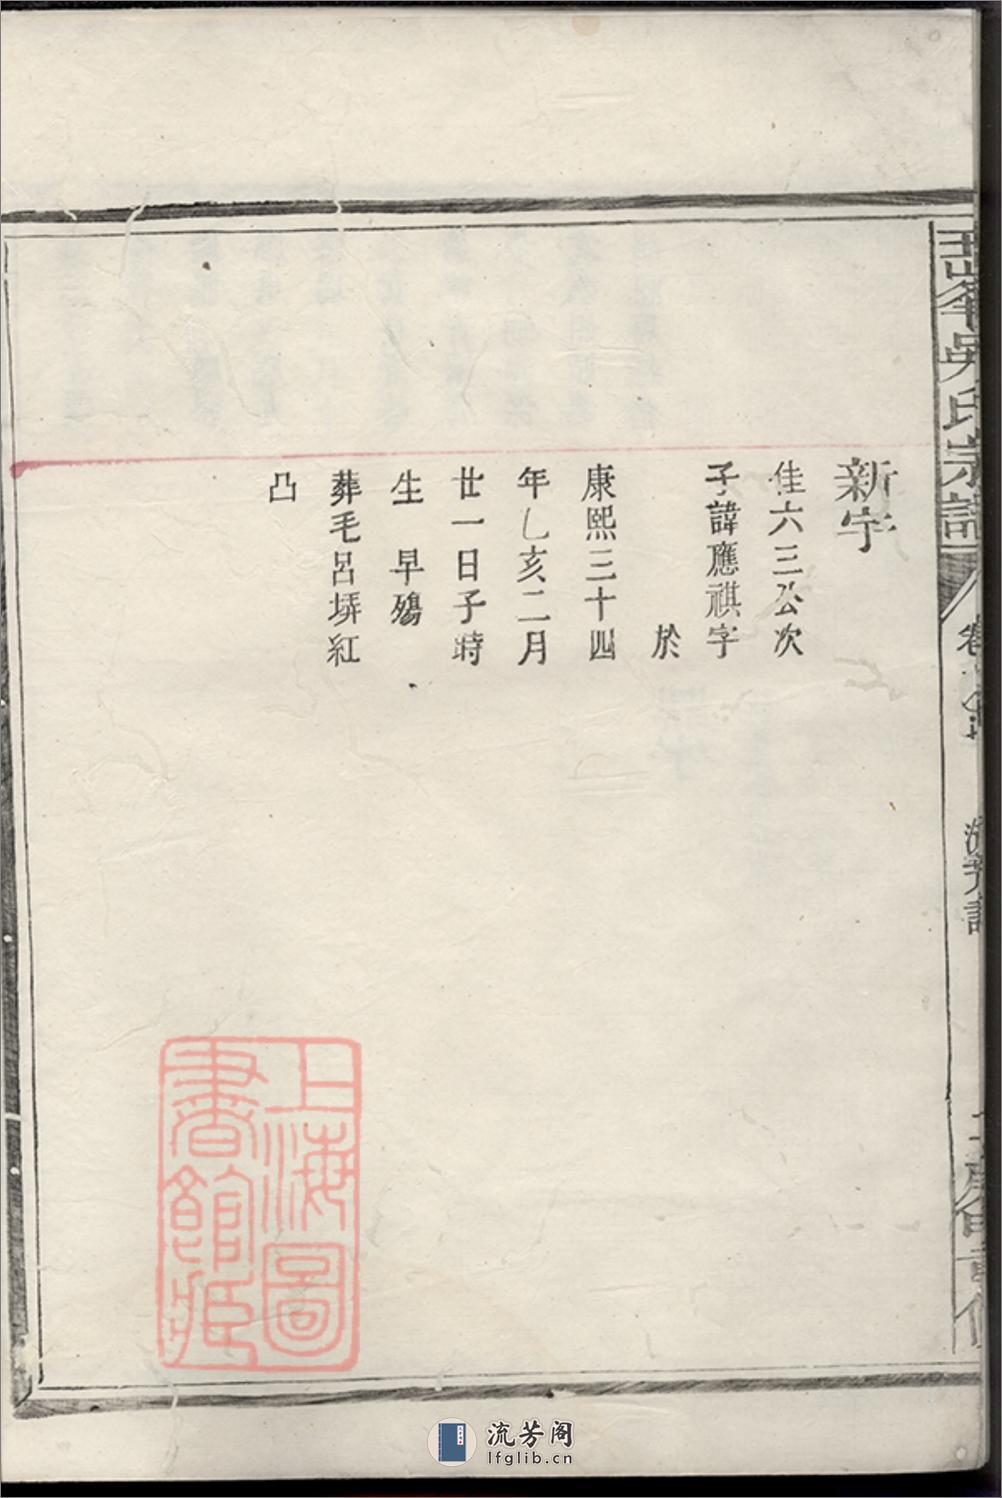 吳氏宗譜
新字
佳六三公次
子諱應祺字
於
康熙三十四
年乙亥二月
廿一日子時
生 早殤
葬毛呂塝紅
凸
上海圖
書館藏
流芳阁
lfglib.cn